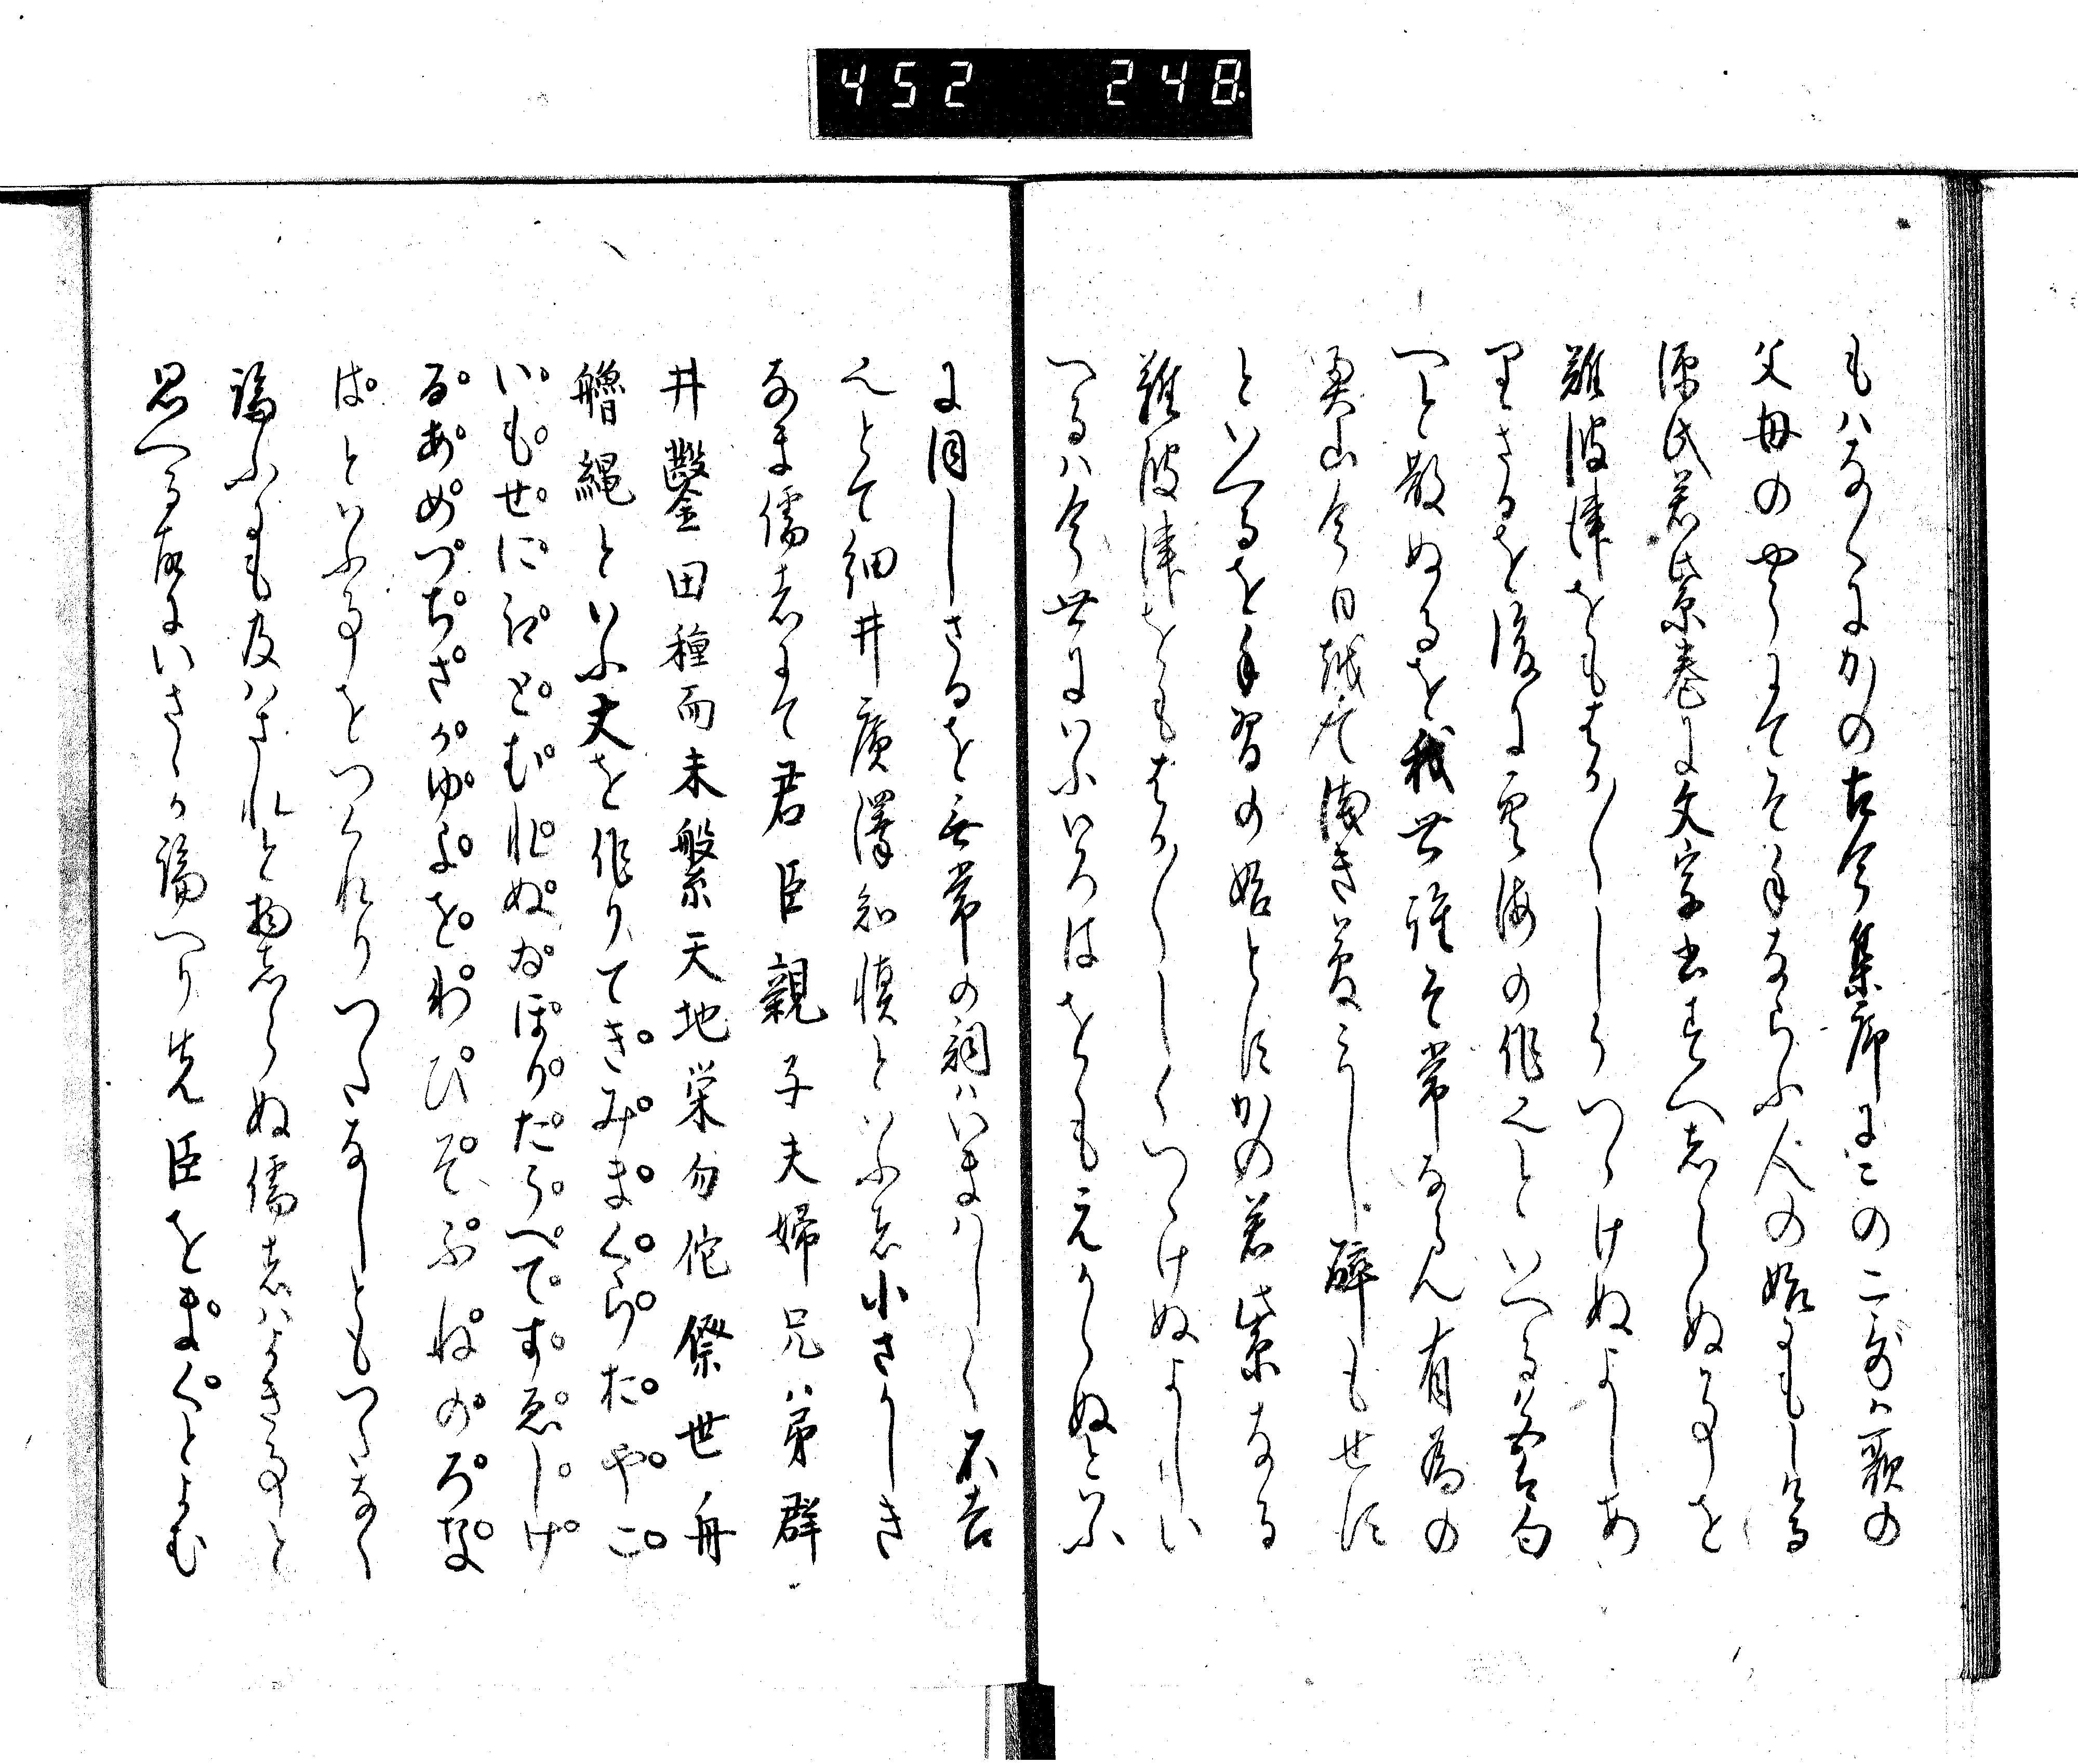 452 248
もハなくにかの古今集序にこの二哥ハ歌の
父母のやうにてそ手ならふ人の始にもしける
源氏若紫巻に文字書すへしらぬ事を
難波津をもはか〱しうつゝけぬよしあ
りさるを後に空海の作也といへる色匂
へと散ぬるを我世誰そ常ならん有為の
奥山今日越て浅き夢みし酔もせす
といへるを手習の始とすかの若紫なる
難波津をもはか〱しくつゝけぬよしい
へるハ今世にいふいろはをもえかゝぬといふ
に同しさるを無常の詞ハいまハしく不吉
也とて細井廣澤知慎といふ者小さかしき
なま儒者にて君臣親子夫婦兄弟群
井鑿田種而末繁天地栄勿佗祭世舟
艪縄といふ文を作りてきみまくらおやこ
いもせにえとむれぬなほりたうへてすゑしけ
るあめつちさかゆよをわひそふねのろな
はといふ事をつくれりつたなしともつたなく
論ふにも及ハされと物しらぬ儒者ハよき事と
思へる故にいさゝか論へり先臣をまくとよむ